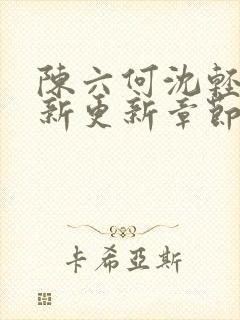 陳六何沈輕
新更新章節
卡希亞斯